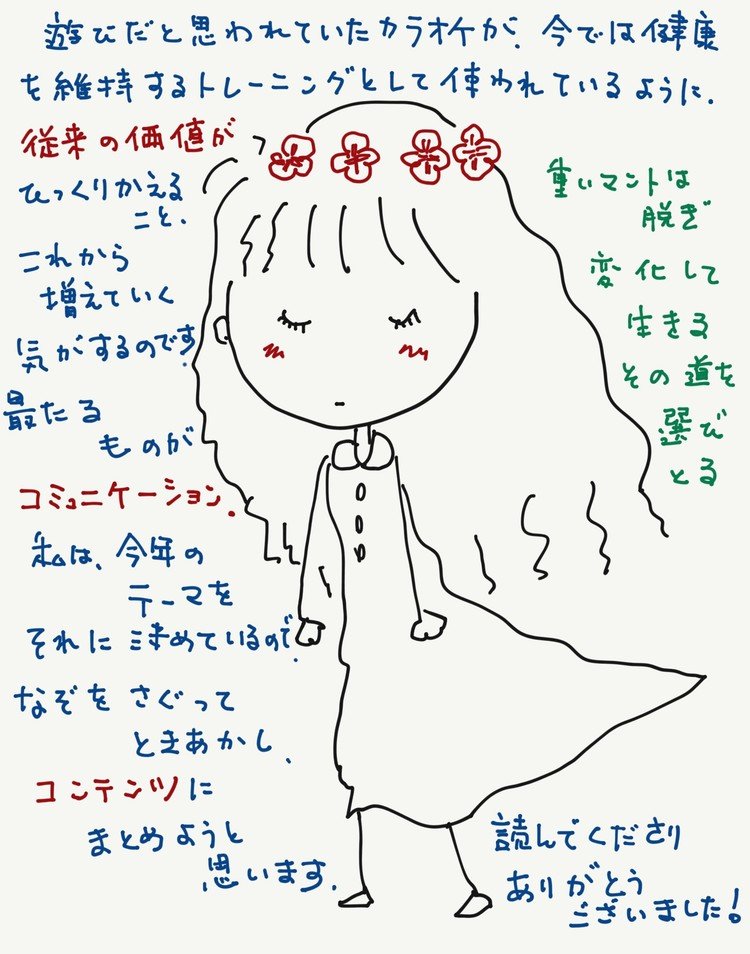 遊びだと思われていたカラオケが、今では健康
を維持するトレーニングとして使われているように、
従来の価値が
ひっくりかえる
こと、
これから
増えていく
気がするのです。
最たる
ものが
コミュニケーション。
私は、今年の
テーマを
それに決めているので、
なぞをさぐって
ときあかし、
コンテンツに
まとめようと
思います。
重いマントは
脱ぎ
変化して
生きる
その道を
選び
とる
読んでくださり
ありがとう
ございました!